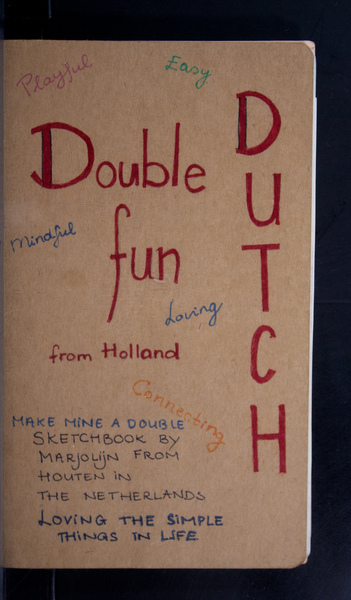 Playful
Easy
Double
DUTCH
fun
Mindful
Loving
from Holland
Connecting
MAKE MINE A DOUBLE
SKETCHBOOK BY
MARJOLIJN FROM
HOUTEN IN
THE NETHERLANDS
LOVING THE SIMPLE
THINGS IN LIFE